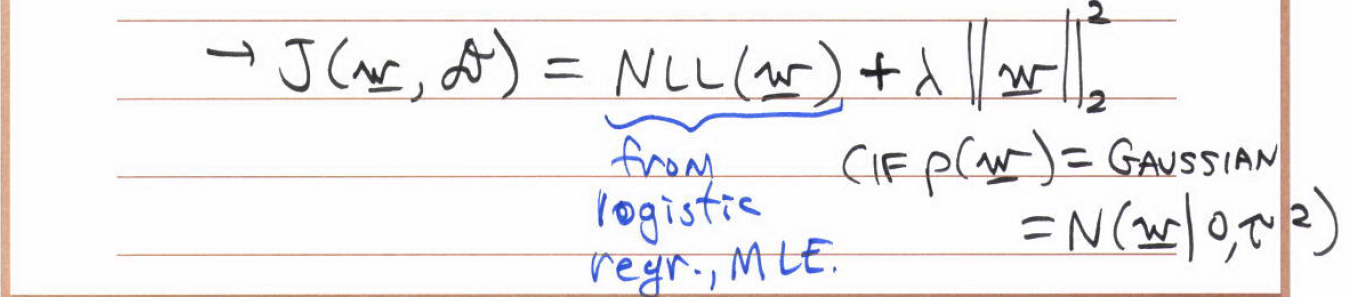 → J(w, D) = NLL(w) + λ ||w||₂²
from
logistic
regr., MLE.
(IF p(w) = GAUSSIAN
= N(w|0,τ²)